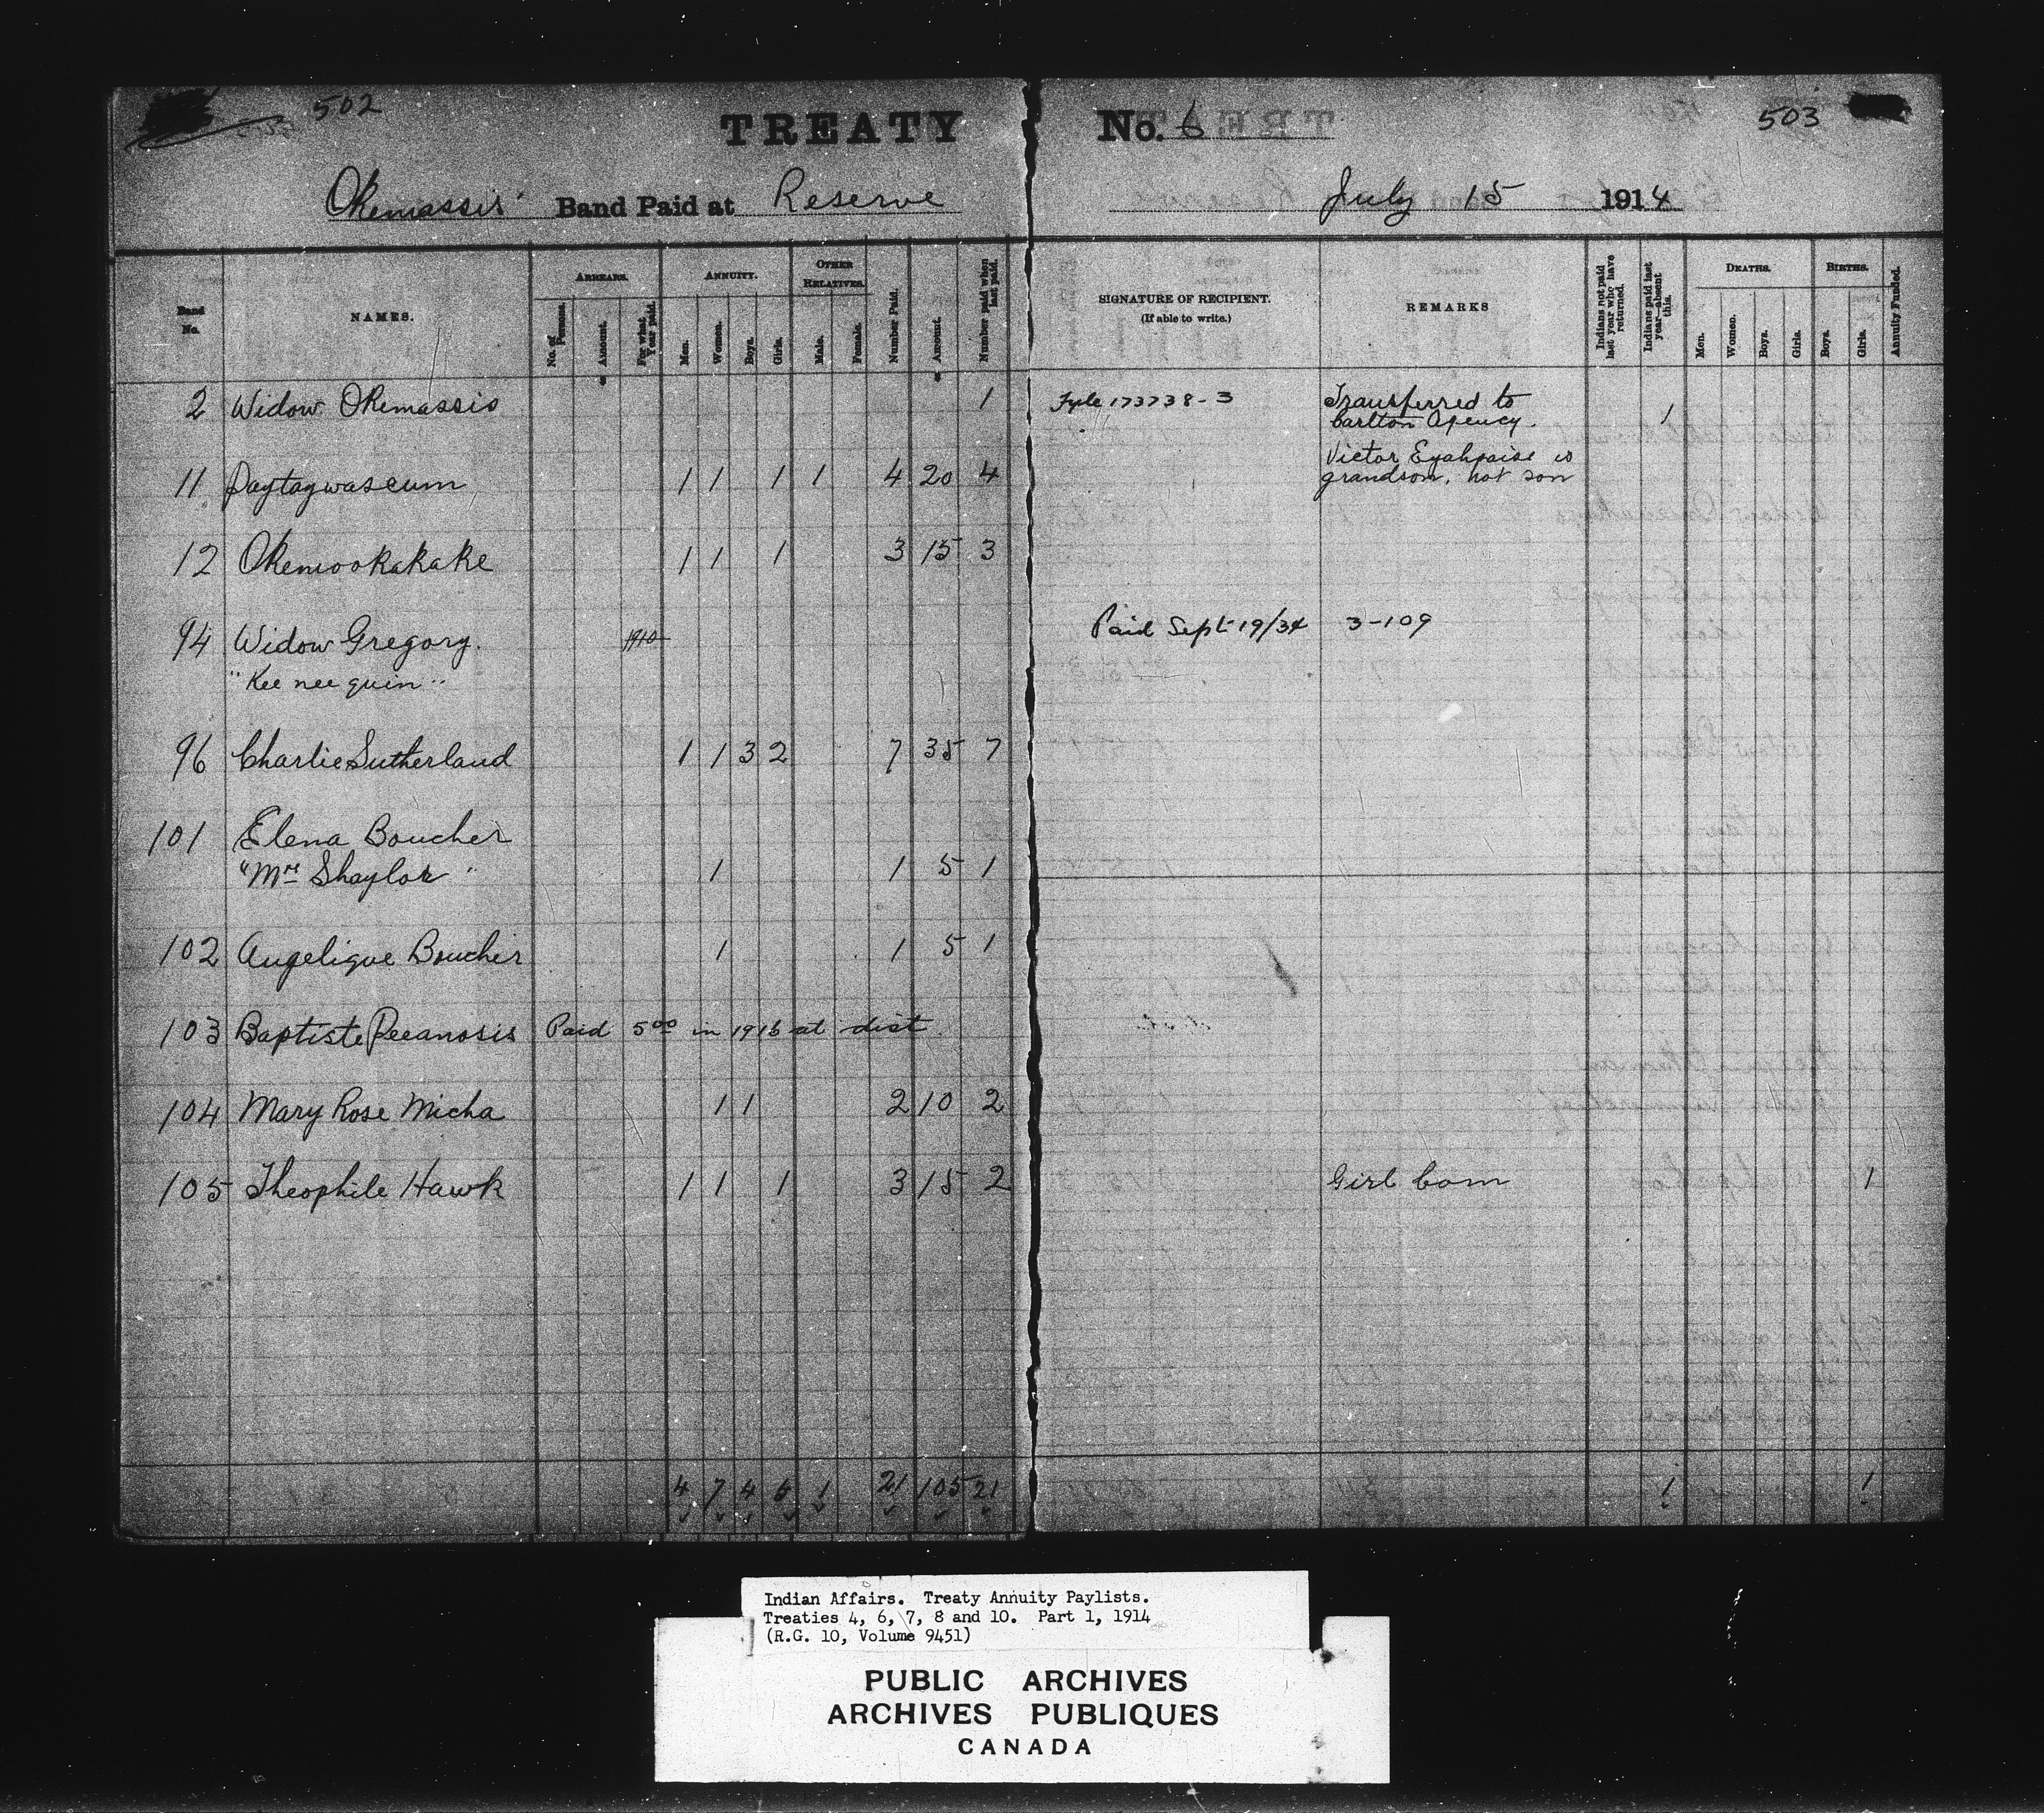 502
TREATY No. 6
503
Okemassis' Band Paid at Reserve July 15 1914
Band No.
NAMES.
ARREARS.
No. of Persons.
Amount.
For what Year paid.
ANNUITY.
Men.
Women.
Boys.
Girls.
OTHER RELATIVES.
Male.
Female.
Number Paid.
Amount.
Number paid when last paid.
SIGNATURE OF RECIPIENT.
(If able to write.)
REMARKS
Indians not paid last year who have returned.
Indians paid last year—absent this.
DEATHS.
Men.
Women.
Boys.
Girls.
BIRTHS.
Boys.
Girls.
Annuity Funded.
2 Widow Okemassis 1 Fyle 173738-3 Transferred to 1
Carlton Agency.
Victor Eyahpaise is
11 Paytaywaseum 1 1 1 1 4 20 4 grandson, not son
12 Okemookakake 1 1 1 3 15 3
94 Widow Gregory. 1910 Paid Sept 19/34 3-109
"Kee nee quin"
96 Charlie Sutherland 1 1 3 2 7 35 7
101 Elena Boucher
"Mrs Shaylor" 1 1 5 1
102 Angelique Boucher 1 1 5 1
103 Baptiste Peeanosis Paid 5.00 in 1916 at dist.
104 Mary Rose Micha 1 1 2 10 2
105 Theophile Hawk 1 1 1 3 15 2 Girl born 1
4 7 4 5 1 21 105 21 1 1
Indian Affairs. Treaty Annuity Paylists.
Treaties 4, 6, 7, 8 and 10. Part 1, 1914
(R.G. 10, Volume 9451)
PUBLIC ARCHIVES
ARCHIVES PUBLIQUES
CANADA